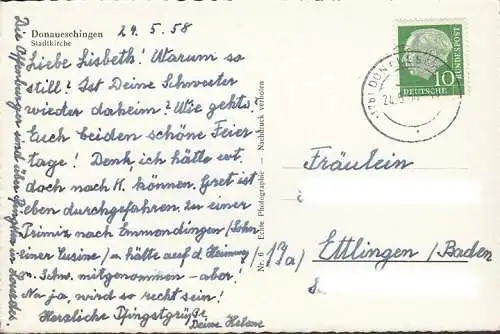 Donaueschingen
Stadtkirche
29.5.58
Liebe Lisbeth! Warum so
still? Ist Deine Schwester
wieder daheim? Wie geht's?
Euch beiden schöne Feier
tage! Denk, ich hätte evt.
doch nach K. können. Gret ist
eben durchgefahren, zu einer
Primiz nach Emmendingen (Sohn
einer Cusine) u. hätte auf d. Heimweg
mitgenommen - aber!
Na ja, wird so recht sein!
Herzliche Pfingstgrüße
Deine Helene
Die Offenburger sind über Pfingsten in
Nr. 6 Echte Photographie - Nachdruck verboten
10
DEUTSCHE
BUNDESPOST
Fräulein
(17a) Ettlingen/Baden